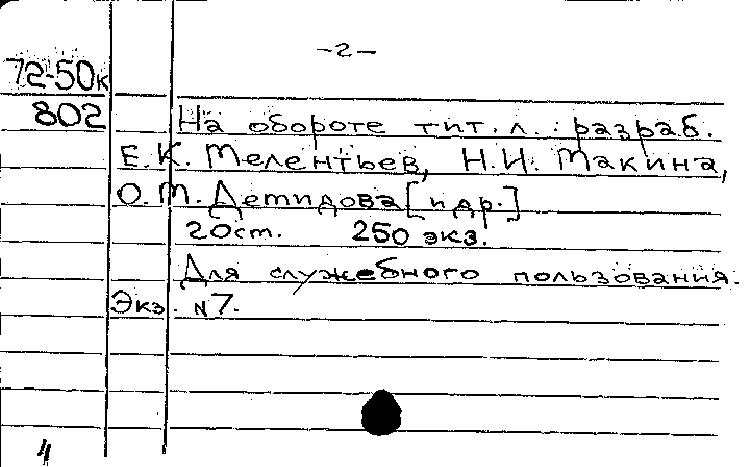 -2-
72-50к
802
На обороте тит. л. : разраб.
Е.К. Мелентьев, Н.И. Макина,
О.М. Демидова [и др.]
20 ст. 250 экз.
Для служебного пользования.
Экз. N7.
4